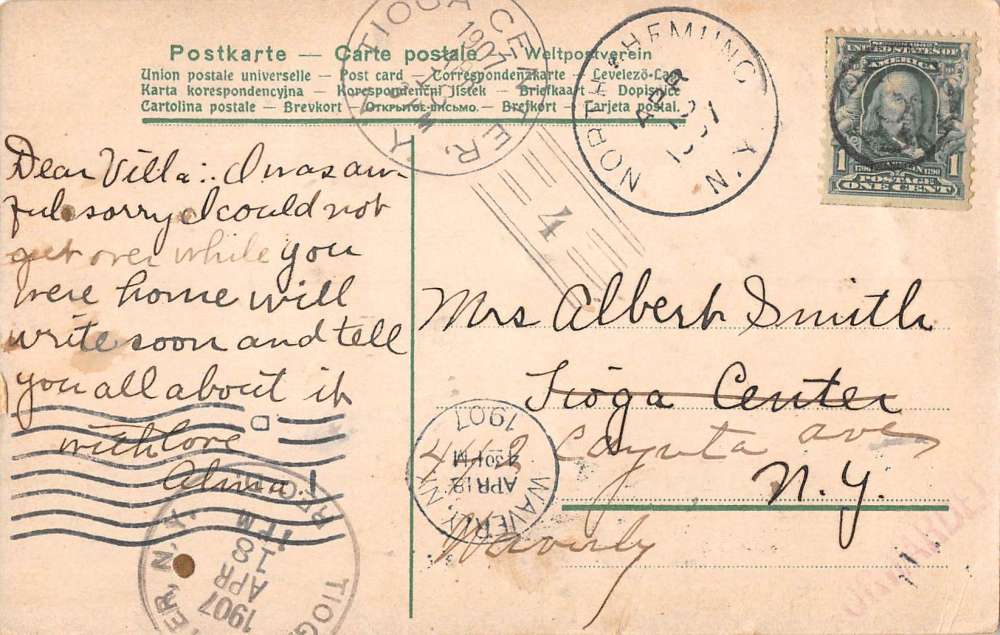 Postkarte — Carte postale — Weltpostverein
Union postale universelle — Post card — Correspondenzkarte — Levelezö-Lap
Karta korespondencyjna — Korespondenční lístek — Briefkaart — Dopisnice
Cartolina postale — Brevkort — Открытое письмо. — Brefkort — Tarjeta postal.
TIOGA CENTER, N.Y.
1907
4
NORTH CHEMUNG N.Y.
APR
UNITED STATES OF
AMERICA
1 1
POSTAGE
ONE CENT
Dear Villa:. I was aw-
ful sorry I could not
get over while you
were home will
write soon and tell
you all about it
with love
Alma.
Mrs Albert Smith
Tioga Center
N.Y.
443 Cayuta ave
Waverly
WAVERLY, N.Y.
APR 19
430 PM
1907
TIOGA CENTER, N.Y.
REC'D
1907
APR
18
1 PM
FORWARDED